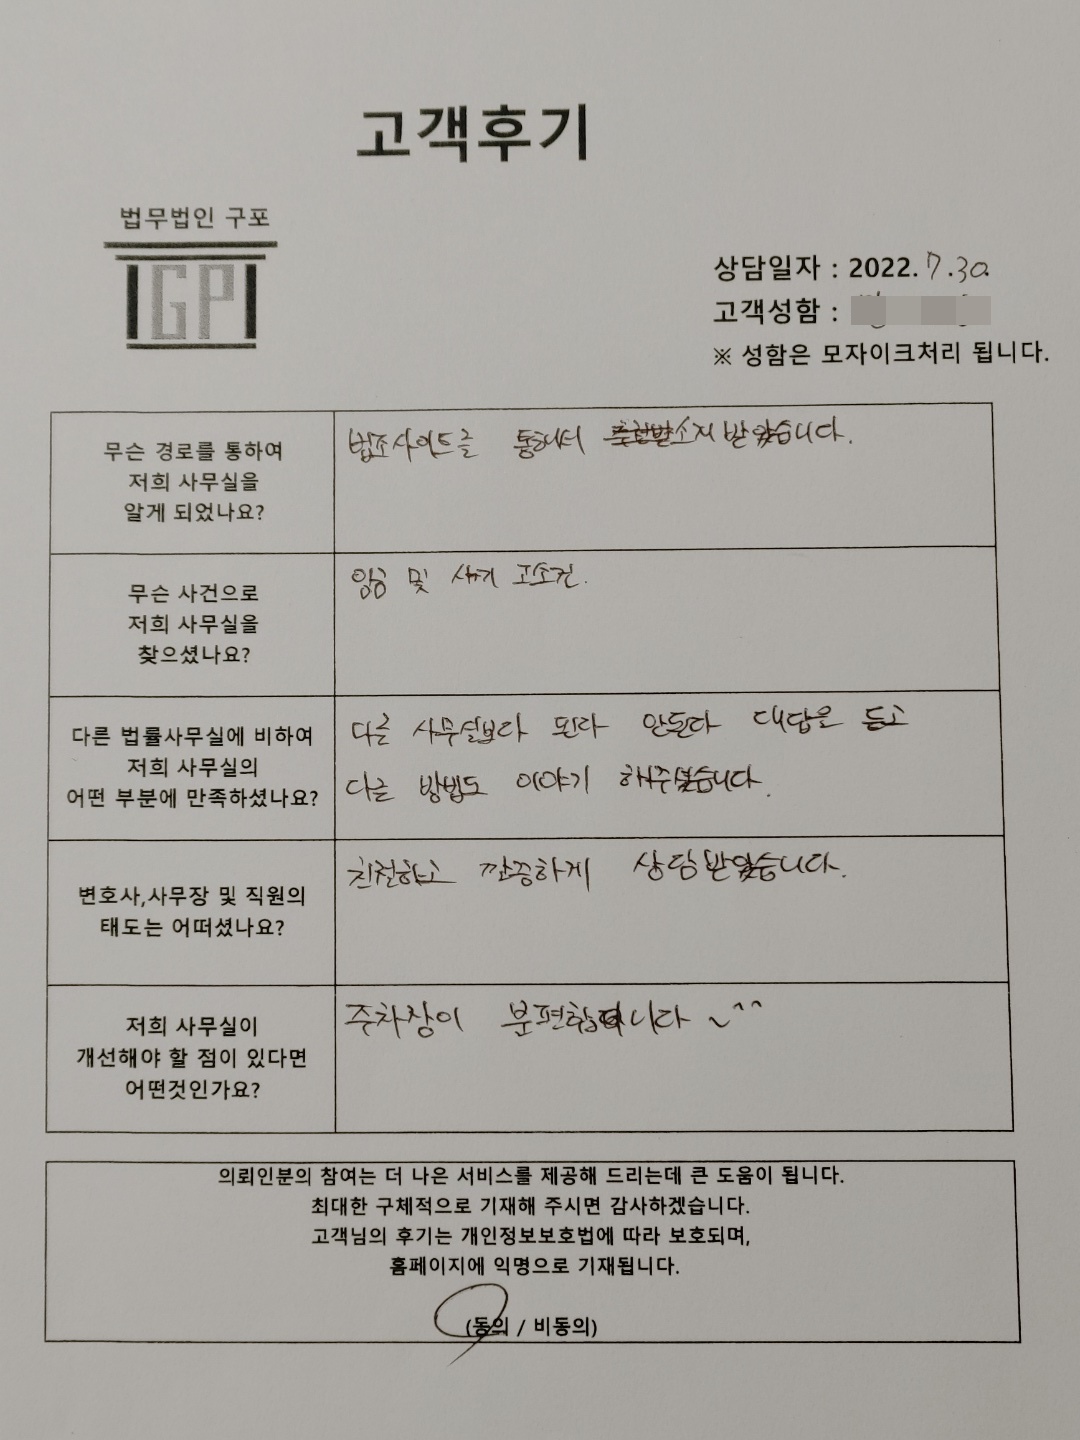 고객후기
법무법인 구포
GP
상담일자 : 2022.7.30.
고객성함 :
※ 성함은 모자이크처리 됩니다.
무슨 경로를 통하여
저희 사무실을
알게 되었나요?
법조사이트를 통해서 소지받았습니다.
무슨 사건으로
저희 사무실을
찾으셨나요?
임금 및 사기 고소건.
다른 법률사무실에 비하여
저희 사무실의
어떤 부분에 만족하셨나요?
다른 사무실보다 된다 안된다 대답을 듣고
다른 방법도 이야기 해주셨습니다.
변호사,사무장 및 직원의
태도는 어떠셨나요?
친절하고 깔끔하게 상담받았습니다.
저희 사무실이
개선해야 할 점이 있다면
어떤것인가요?
주차장이 불편합니다 ~^^
의뢰인분의 참여는 더 나은 서비스를 제공해 드리는데 큰 도움이 됩니다.
최대한 구체적으로 기재해 주시면 감사하겠습니다.
고객님의 후기는 개인정보보호법에 따라 보호되며,
홈페이지에 익명으로 기재됩니다.
(동의 / 비동의)